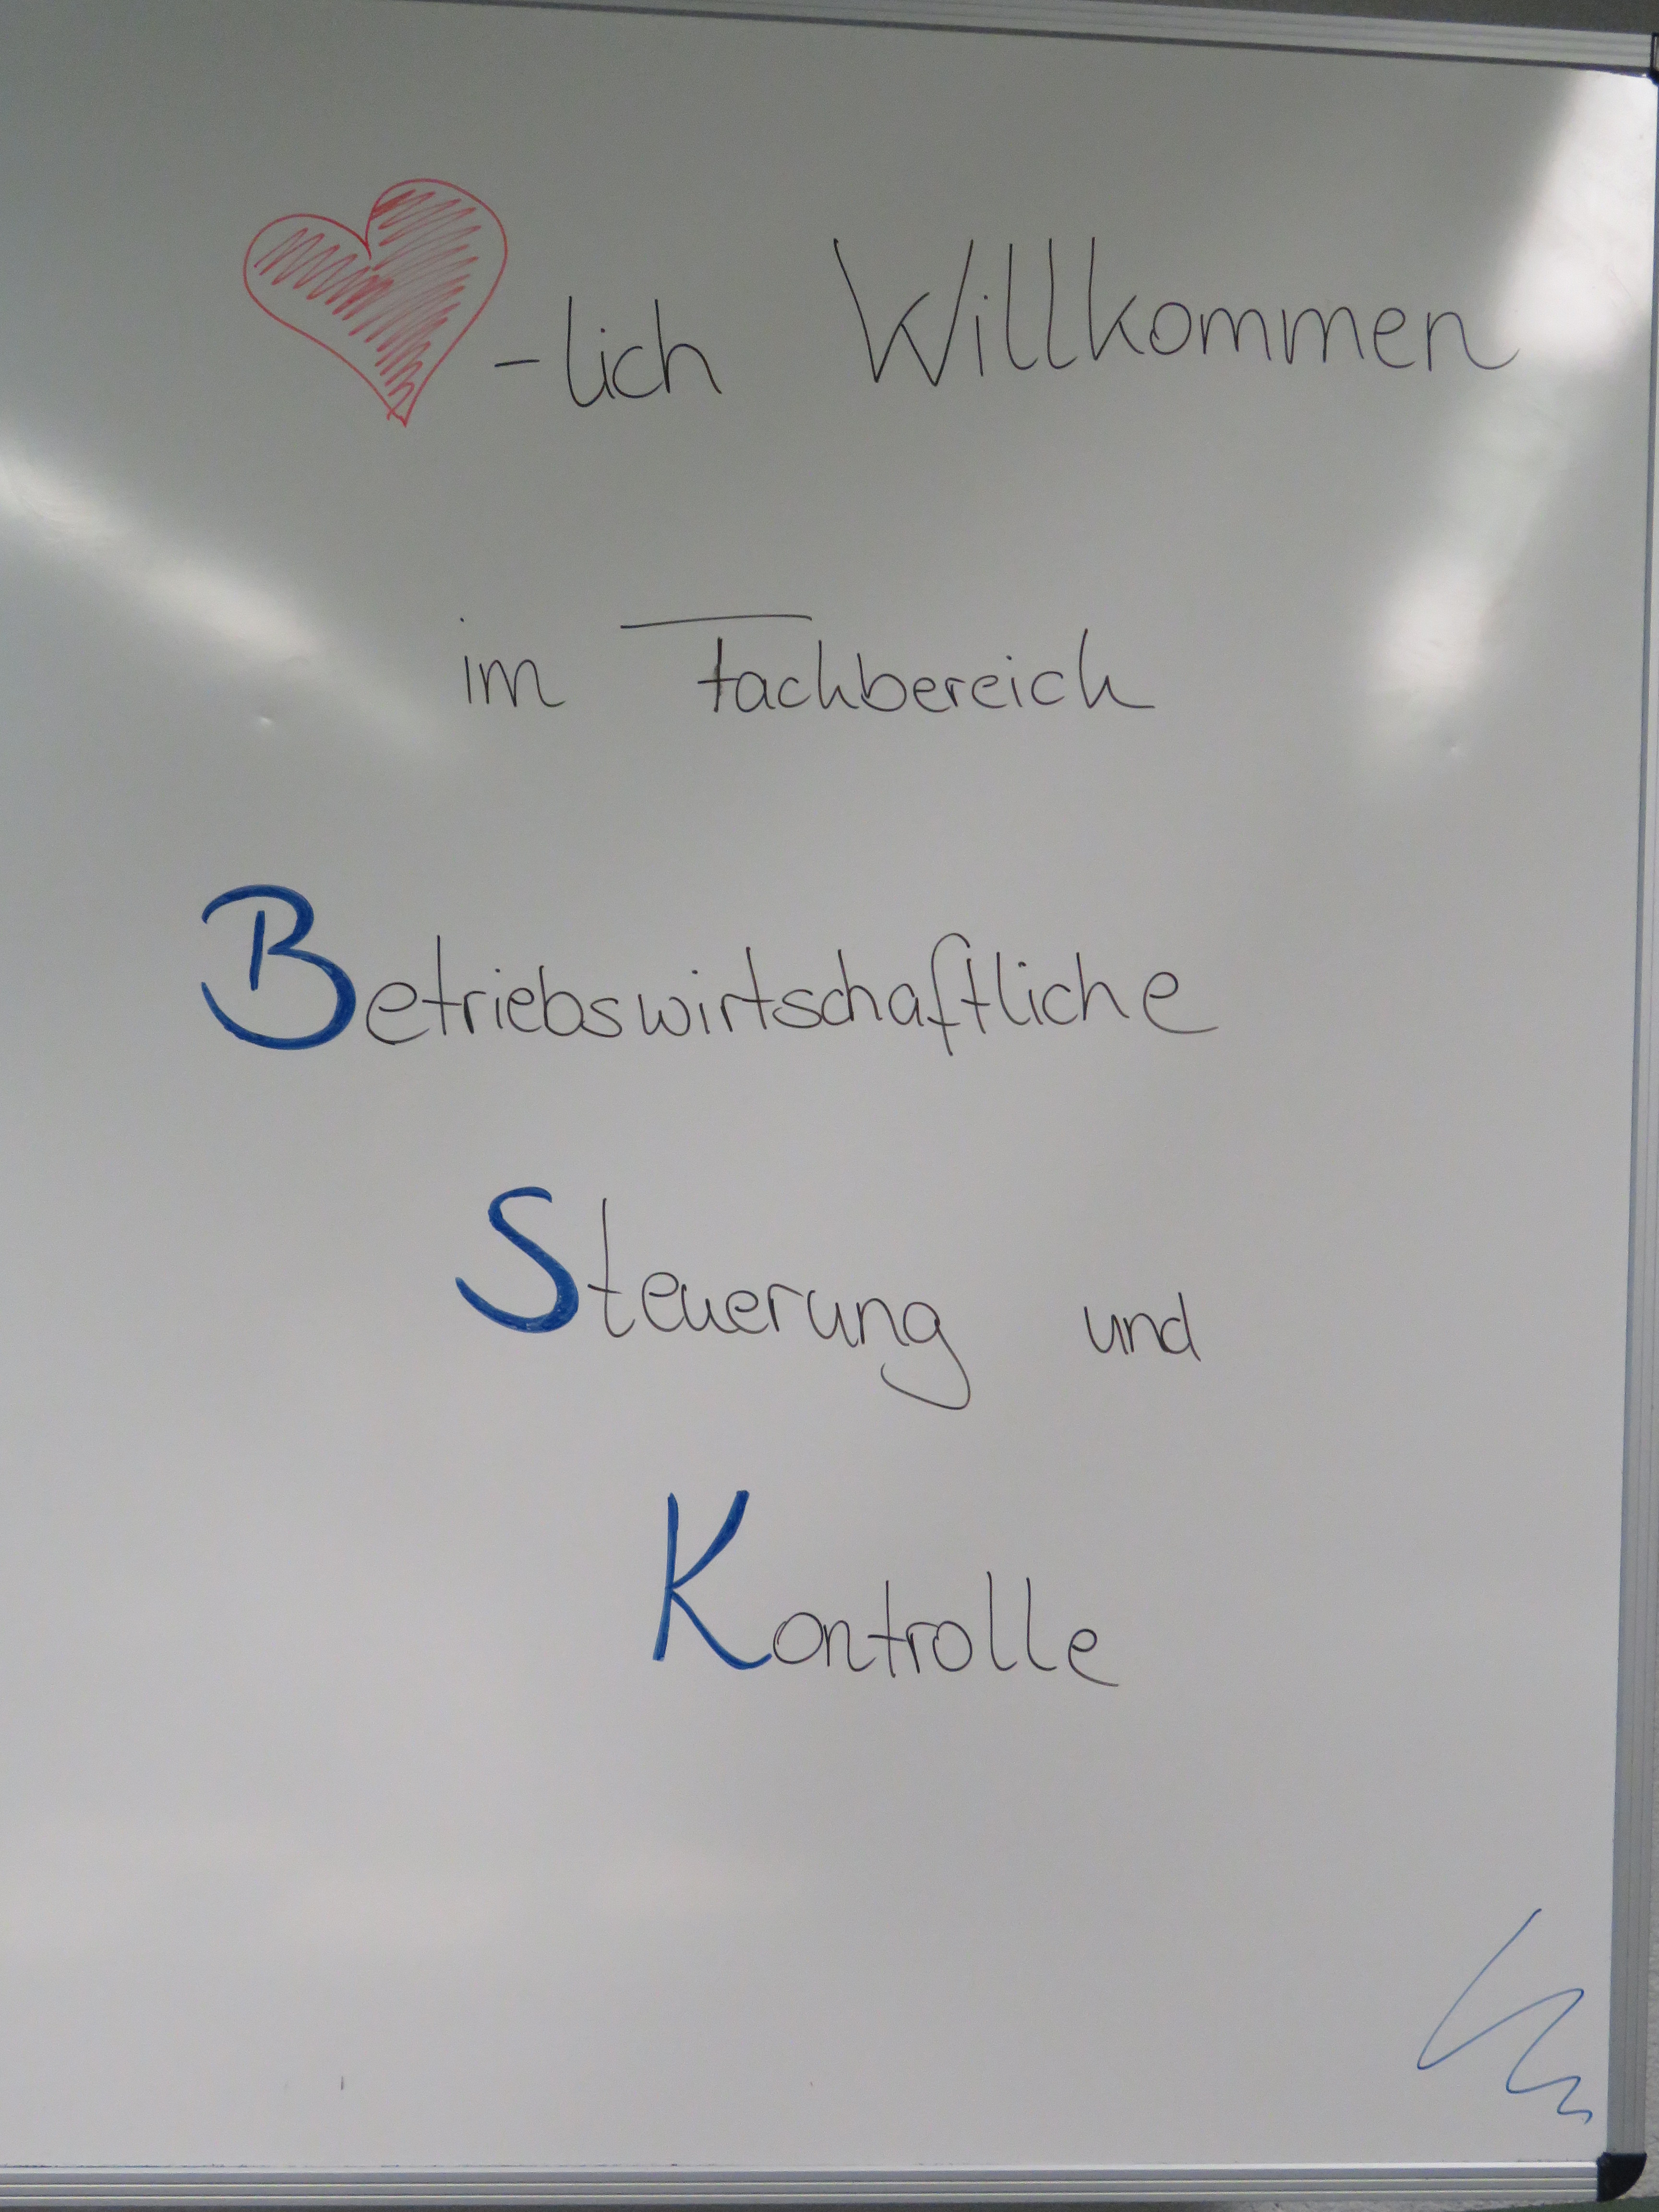 ❤-lich Willkommen
im Fachbereich
Betriebswirtschaftliche
Steuerung und
Kontrolle